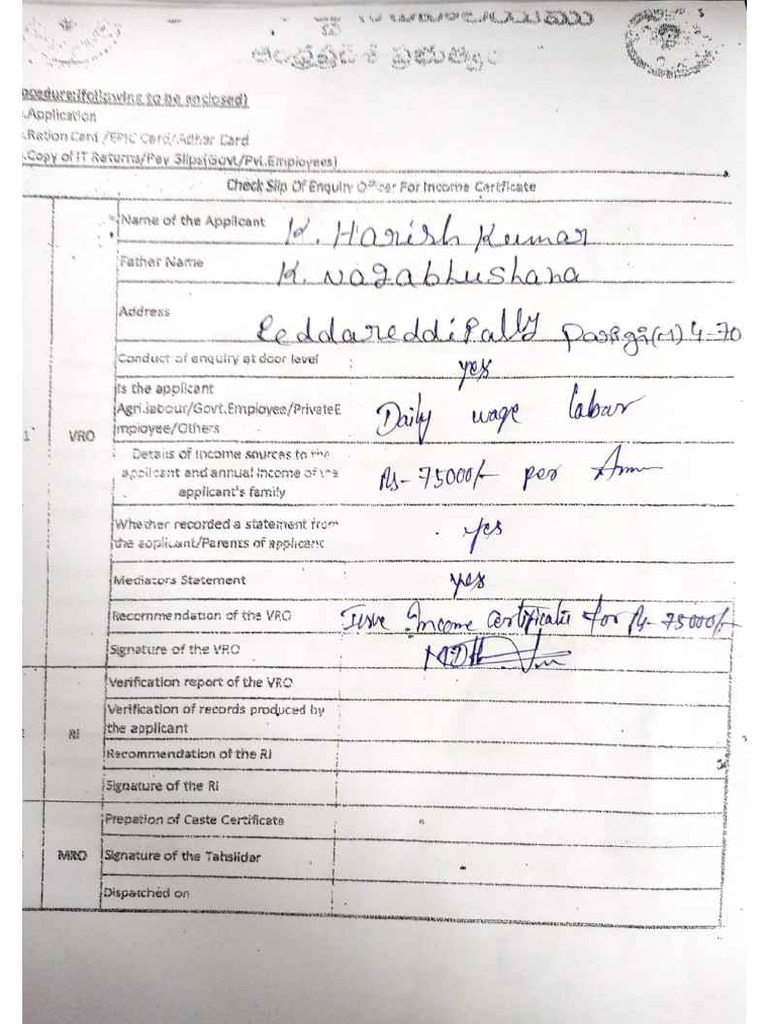 ఆంధ్రప్రదేశ్ ప్రభుత్వం
ocedure:(following to be enclosed)
.Application
.Ration Card /EPIC Card/Adhar Card
.Copy of IT Returns/Pay Slips(Govt/Pvt.Employees)
Check Slip Of Enquiry Officer For Income Certficate
Name of the Applicant K. Harish Kumar
Father Name K. Nagabhushana
Address Peddareddipally Parigi(M) 4-70
Conduct of enquiry at door level : yes
Is the applicant
Agri.labour/Govt.Employee/PrivateE
mployee/Others Daily wage labar
1 VRO
Details of income sources to the
applicant and annual income of the
applicant's family Rs- 75000/- per
Whether recorded a statement from
the applicant/Parents of applicant yes
Mediators Statement yes
Recommendation of the VRO Issue Income certificate for Rs- 75000/-
Signature of the VRO
Verification report of the VRO
Verification of records produced by
the applicant
RI
Recommendation of the RI
Signature of the RI
Prepation of Caste Certificate
MRO Signature of the Tahsildar
Dispatched on